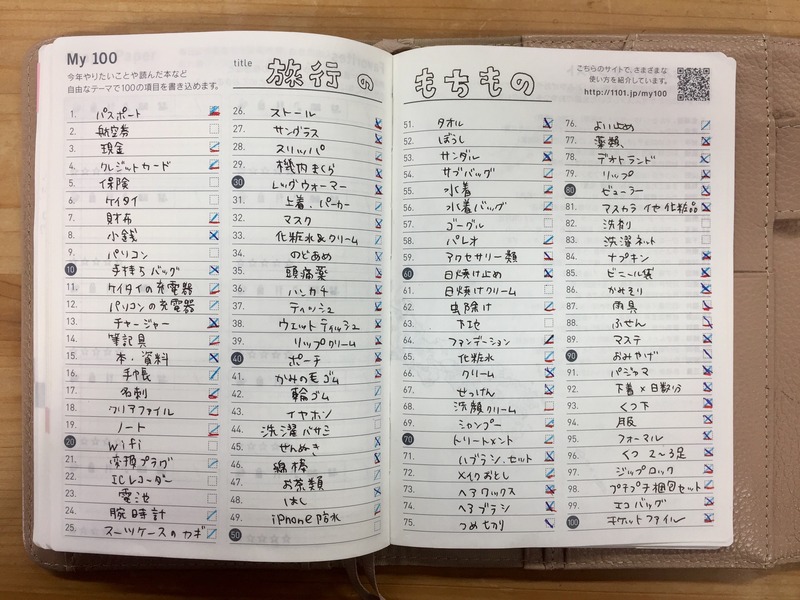 My 100
今年やりたいことや読んだ本など
自由なテーマで100の項目を書き込めます。
title 旅行の
もちもの
こちらのサイトで、さまざまな
使い方を紹介しています。
http://1101.jp/my100
1. パスポート
2. 航空券
3. 現金
4. クレジットカード
5. 保険
6. ケイタイ
7. 財布
8. 小銭
9. パソコン
10 手持ちバッグ
11. ケイタイの充電器
12. パソコンの充電器
13. チャージャー
14. 筆記具
15. 本・資料
16. 手帳
17. 名刺
18. クリアファイル
19. ノート
20 wifi
21. 変換プラグ
22. ICレコーダー
23. 電池
24. 腕時計
25. スーツケースのカギ
26. ストール
27. サングラス
28. スリッパ
29. 機内まくら
30 レッグウォーマー
31. 上着、パーカー
32. マスク
33. 化粧水&クリーム
34. のどあめ
35. 頭痛薬
36. ハンカチ
37. ティッシュ
38. ウェットティッシュ
39. リップクリーム
40 ポーチ
41. かみの毛ゴム
42. 輪ゴム
43. イヤホン
44. 洗濯バサミ
45. せんぬき
46. 綿棒
47. お茶類
48. はし
49. iPhone防水
50
51. タオル
52. ぼうし
53. サンダル
54. サブバッグ
55. 水着
56. 水着バッグ
57. ゴーグル
58. パレオ
59. アクセサリー類
60 日焼け止め
61. 日焼けクリーム
62. 虫除け
63. 下地
64. ファンデーション
65. 化粧水
66. クリーム
67. せっけん
68. 洗顔クリーム
69. シャンプー
70 トリートメント
71. ハブラシ、セット
72. メイクおとし
73. ヘアワックス
74. ヘアブラシ
75. つめ切り
76. よい止め
77. 薬類、
78. デオトランド
79. リップ
80 ビューラー
81. マスカラ イ他化粧品
82. 洗剤
83. 洗濯ネット
84. ナプキン
85. ビニール袋
86. かみそり
87. 雨具
88. ふせん
89. マステ
90 おみやげ
91. パジャマ
92. 下着×日数分
93. くつ下
94. 服
95. フォーマル
96. くつ 2〜3足
97. ジップロック
98. プチプチ梱包セット
99. エコバッグ
100 チケットファイル